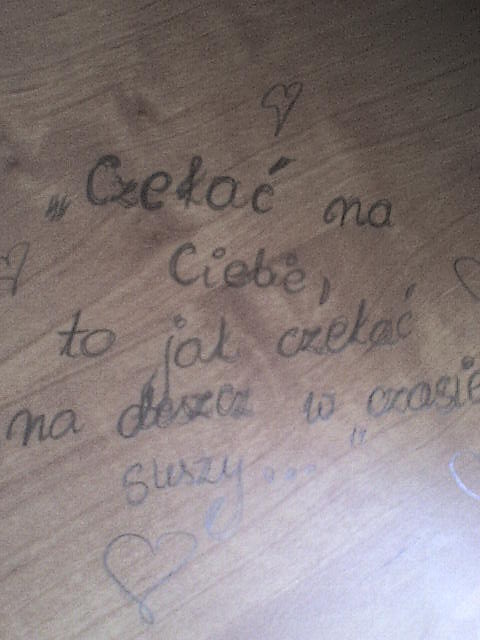 „Czekać na
Ciebie,
to jak czekać
na deszcz w czasie
suszy..."